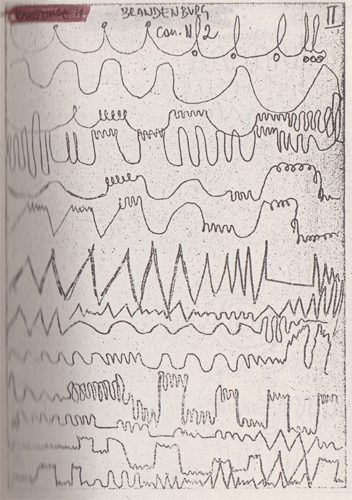 BRANDENBURG II
Con. N 2